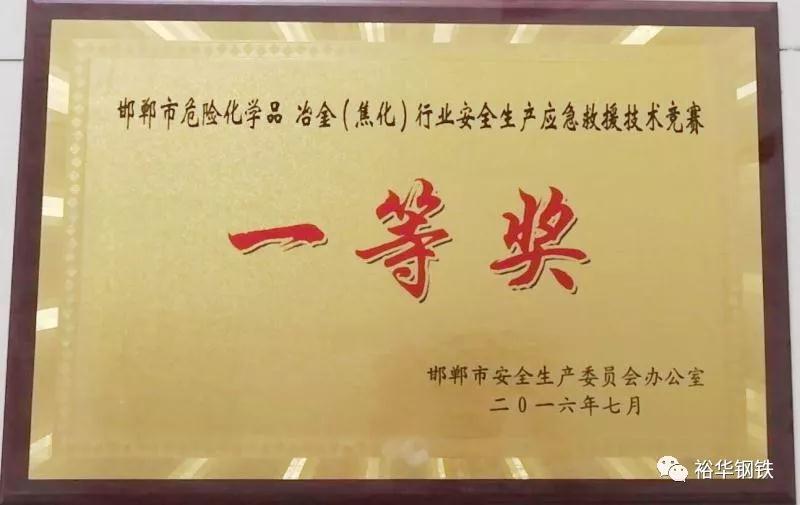 邯郸市危险化学品 冶金(焦化)行业安全生产应急救援技术竞赛
一等奖
邯郸市安全生产委员会办公室
二〇一六年七月
裕华钢铁